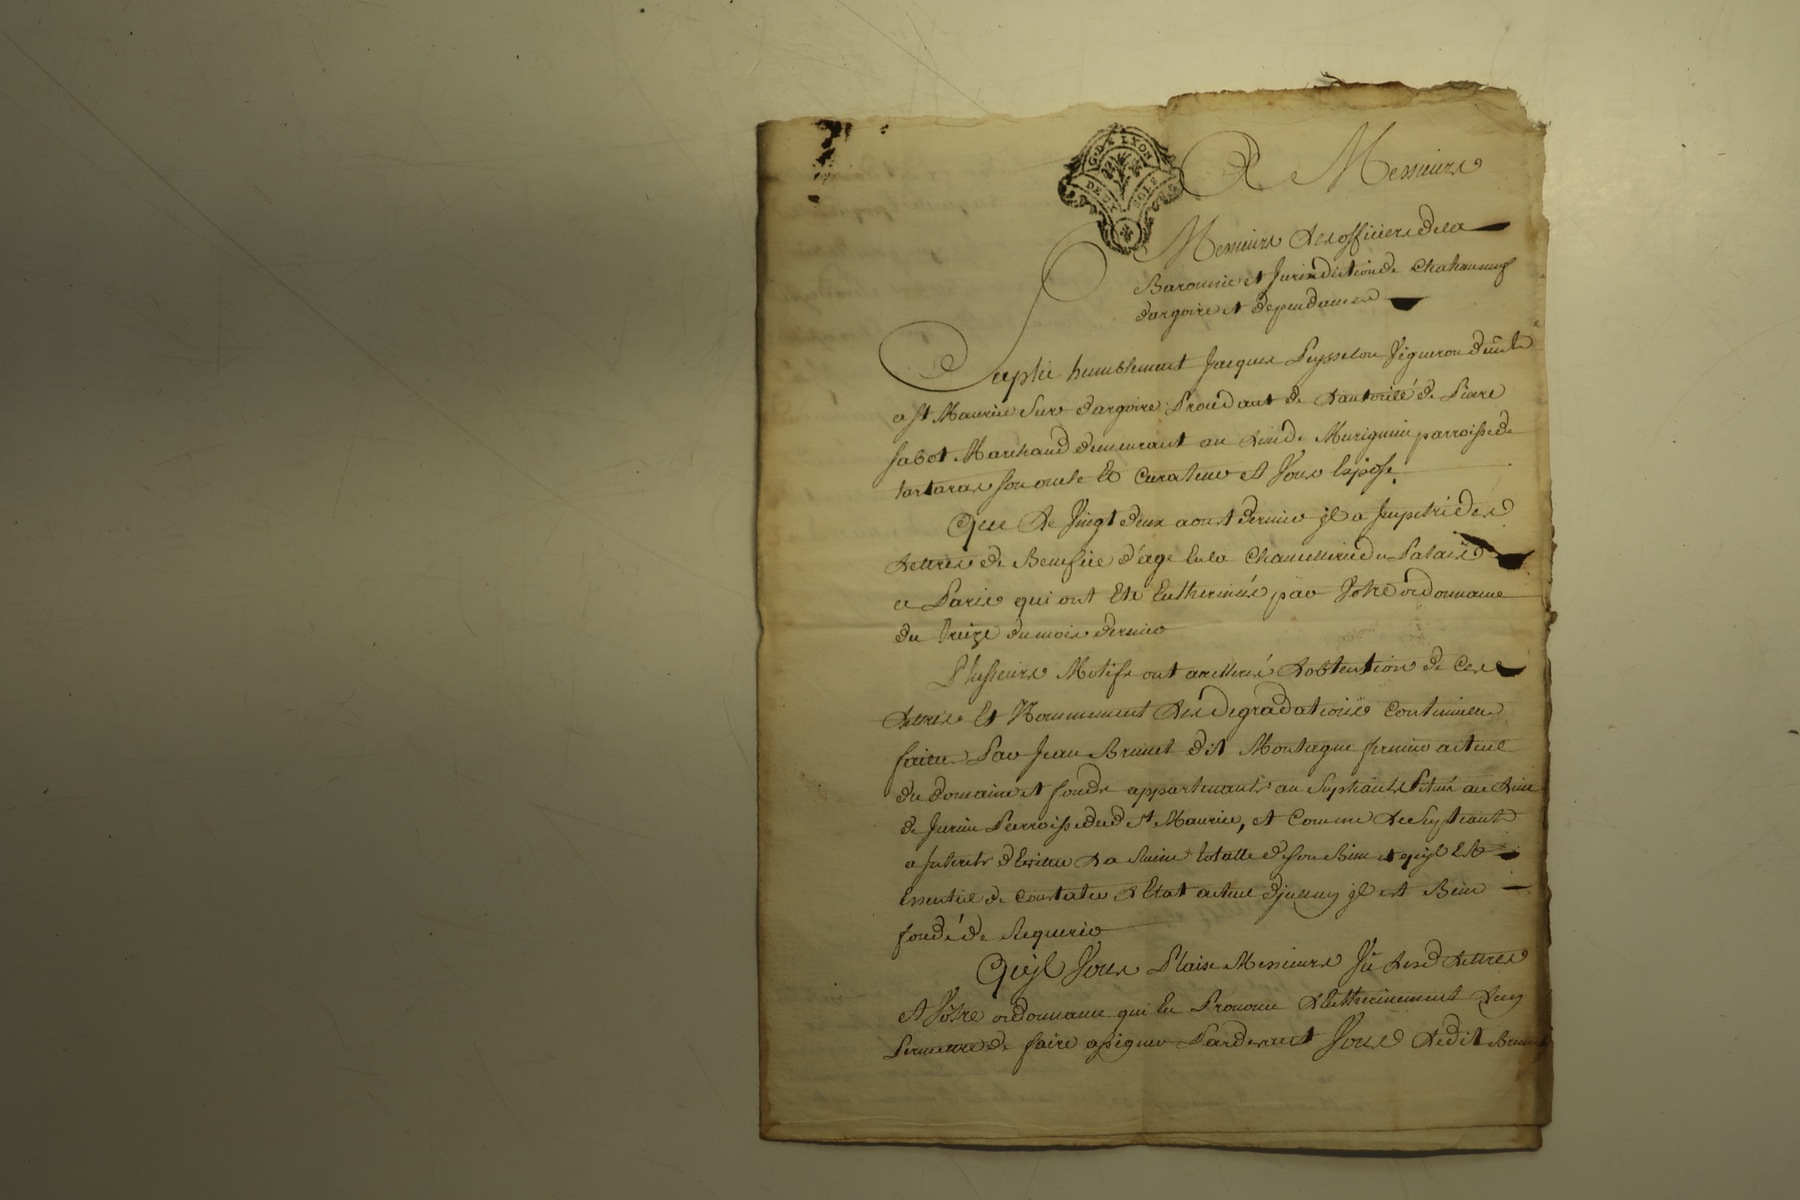 G.D.E LYON
DEUX SOLS
A Messieurs
Messieurs les officiers de la
Baronnie et Jurisdiction de Chateauneuf
dargoire et dependances
Suplie humblement Jacques Peysselon Vigneron demt
a St Maurice Sur dargoire Procedant de Lautorité de Piere
Jabot Marchand demeurant au Lieu de Murigniu parroisse de
tartaras son oncle Et Curateur et Vous Expose
Que Le Vingt deux aoust dernier jl a Jmpetré des
Lettres de Benefice d'age En la Chancellerie du Palais
a Paris qui ont Eté Entherinés par Votre ordonnance
du treize du mois dernier
Plusieurs Motifs ont accelleré Lobtention de Ces
Lettres Et Nommement Les degradations Continuelles
faites Par Jean Brunet dit Montagne fermier actuel
du domaine et fonds appartenants au Supliant Situés au Lieu
de Jurieu Parroisse dud St Maurice, et Comme Le Supliant
a Jnterets dEviter La Ruine totalle de son Bien et quil Est
Essentiel de Constater LEtat actuel djceluy jl est Bien
fondé de Requerir
Qujl Vous Plaise Messieurs Vû Lesd Lettres
Et Votre ordonnance qui En Prononce LEntherinement Luy
Permettre de faire assigner Pardevant Vous Ledit Brunet